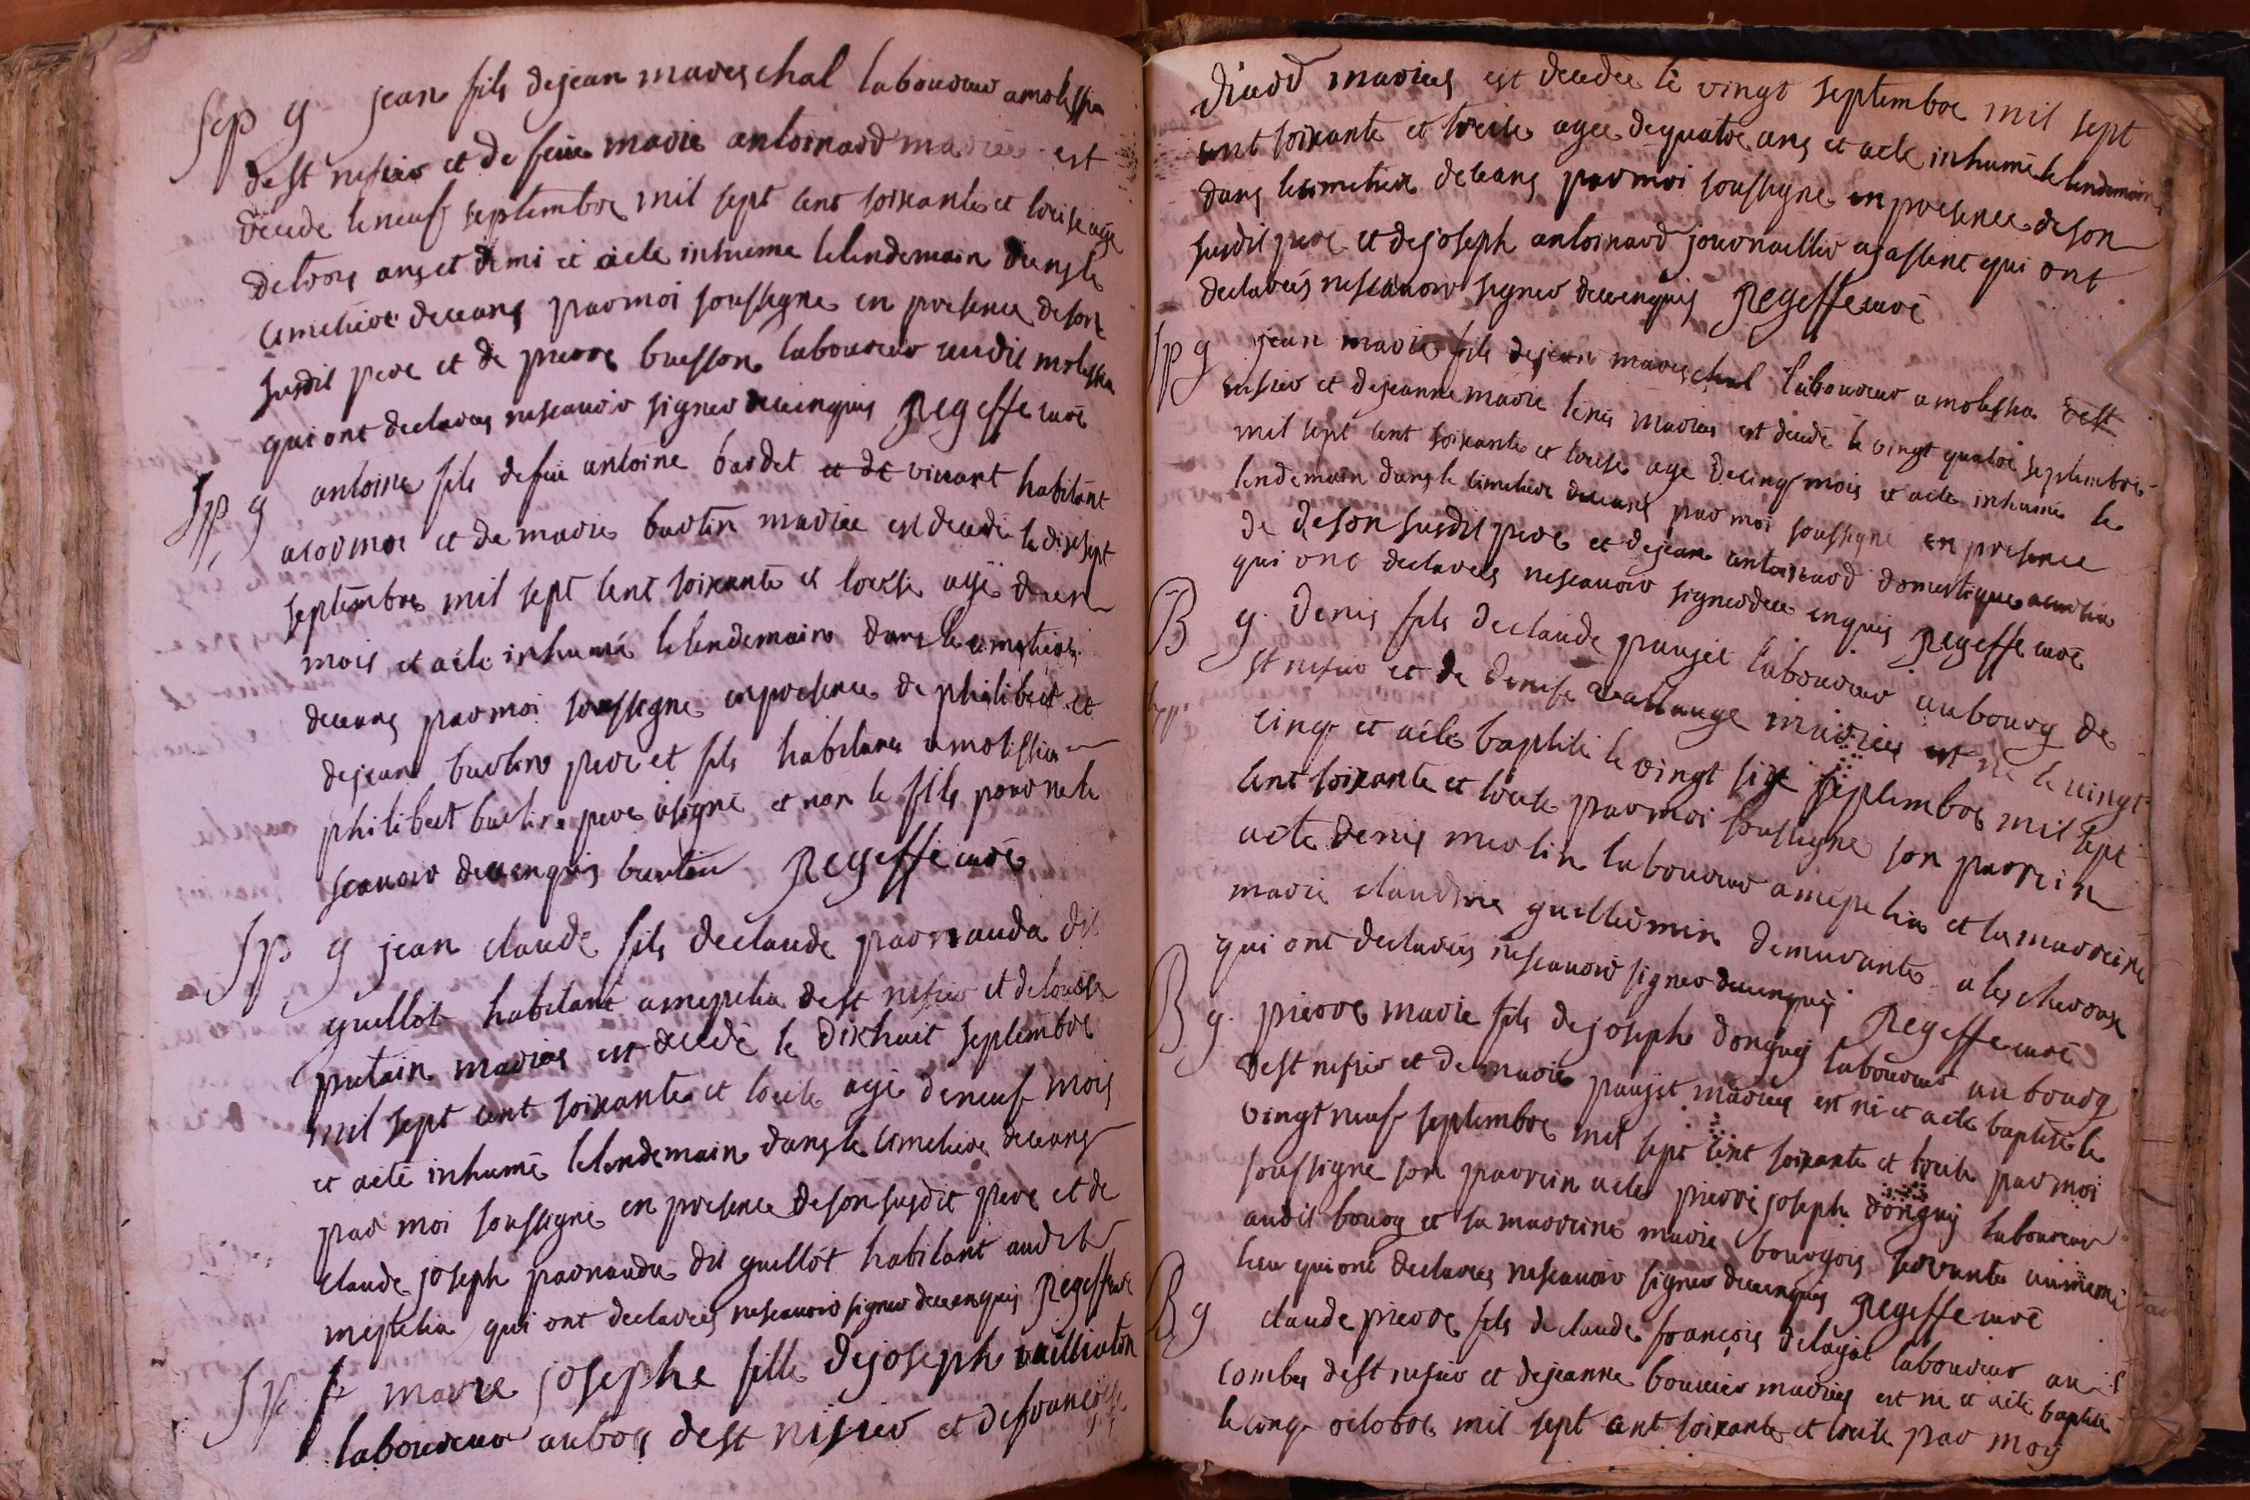 Sep g jean fils de jean mareschal laboureur a molissia
de st nisier et de feüe marie antoinard mariés est
decede le neuf septembre mil sept cent soixante et treise agé
de trois ans et demi et a eté inhume le lendemain dans le
cimetiere de ceans par moi soussigne en presence de son
susdit pere et de pierre buisson laboureur audit molissia
qui ont declarés ne scauoir signer de ce enquis regeffe curé
Sp g antoine fils de feü antoine bardet et de viuant habitant
a cormoz et de marie burtin mariée est decedé le dixsept
septembre mil sept cent soixante et treise agé d un
mois et a eté inhumé le lendemain dans le cimetiere
de ceans par moi soussigne en presence de philibert et
de jean burtin pere et fils habitans a molissia
philibert burtin pere a signé et non le fils pour ne le
scauoir de ce enquis burtin regeffe curé
Sp g jean claude fils de claude parnauda dit
guillot habitant a mepelia de st nisier et de louise
putain mariés est decedé le dixhuit septembre
mil sept cent soixante et treise agé de neuf mois
et a eté inhumé le lendemain dans le cimetiere de ceans
par moi soussigné en presence de son susdit pere et de
claude joseph parnauda dit guillot habitant audit
mepelia qui ont declarés ne scauoir signer de ce enquis regeffe curé
Sp f marie josephe fille de joseph
laboureur au bos de st nisier et de françoise
mariés est decedée le vingt septembre mil sept
cent soixante et treise agée de quatre ans et a eté inhumé le lendemain
dans le cimetiere de ceans par moi soussigne en presence de son
susdit pere et de joseph antoinard journaillier a jassent qui ont
declarés ne scauoir signer de ce enquis regeffe curé
Sp g jean marie fils de jean mareschal laboureur a molissia de st
nisier et de jeanne marie mariés est decedé le vingt quatre septembre
mil sept cent soixante et treise agé de cinq mois et a eté inhumé le
lendemain dans le cimetiere de ceans par moi soussigné en presence
de de son susdit pere et de jean antoinard domestique
qui ont declarés ne scauoir signer de ce enquis regeffe curé
B g denis fils de claude paujet laboureur au bourg de
st nisier et de denise mariés est né le vingt
cinq et a eté baptisé le vingt six septembre mil sept
cent soixante et treise par moi soussigne son parrein
a eté denis merlin laboureur a mepelia et la marreine
marie claudine guillermin demurante a les cheroux
qui ont declarés ne scauoir signer de ce enquis regeffe curé
B g pierre marie fils de joseph donguy laboureur au bourg
de st nisier et de marie paujet mariés est né et a eté baptisé le
vingt neuf septembre mil sept cent soixante et treise par moi
soussigné son parrein a eté pierre joseph donguy laboureur
audit bourg et sa marreine marie bourgois servante au meme
lieu qui ont declarés ne scauoir signer de ce enquis regeffe curé
B g claude pierre fils de claude françois delajat laboureur au
combes de st nisier et de jeanne bouuier mariés est né et a eté baptisé
le cinq octobre mil sept cent soixante et treise par moy